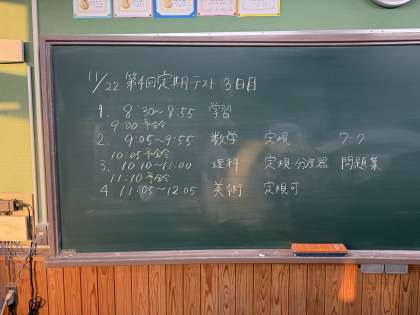 11/22 第4回定期テスト 3日目
1. 8:30～8:55 学習
9:00 予鈴
2. 9:05～9:55 数学 定規 ワーク
10:05 予鈴
3. 10:10～11:00 理科 定規 分度器 問題集
11:10 予鈴
4 11:05～12:05 美術 定規可